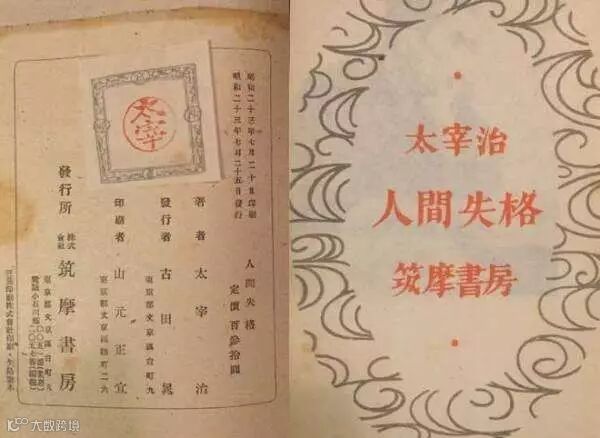 昭和二十三年七月二十日印刷
昭和二十三年七月二十五日發行
人間失格
定價百參拾圓
著者 太宰治
發行者 古田晁
東京都文京區台町九
印刷者 山元正宜
發行所 株式會社 筑摩書房
東京都文京區台町九
太宰
太宰治
人間失格
筑摩書房
大数跨境